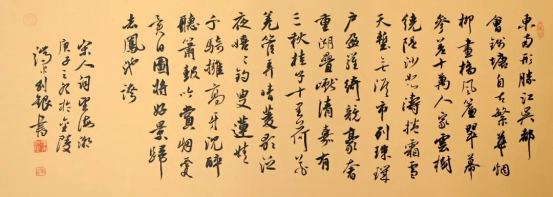 東南形勝江吳都
會錢塘自古繁華煙
柳畫橋風簾翠幕
參差十萬人家雲樹
繞隄沙怒濤捲霜雪
天塹無涯市列珠璣
户盈羅綺競豪奢
重湖疊巘清嘉有
三秋桂子十里荷花
羌管弄晴菱歌泛
夜嬉嬉釣叟蓮娃
千騎擁高牙沉醉
聽簫鼓吟賞煙霞
異日圖將好景歸
去鳳池誇
宋人詞望海潮
庚子之冬於金陵
劉銀書